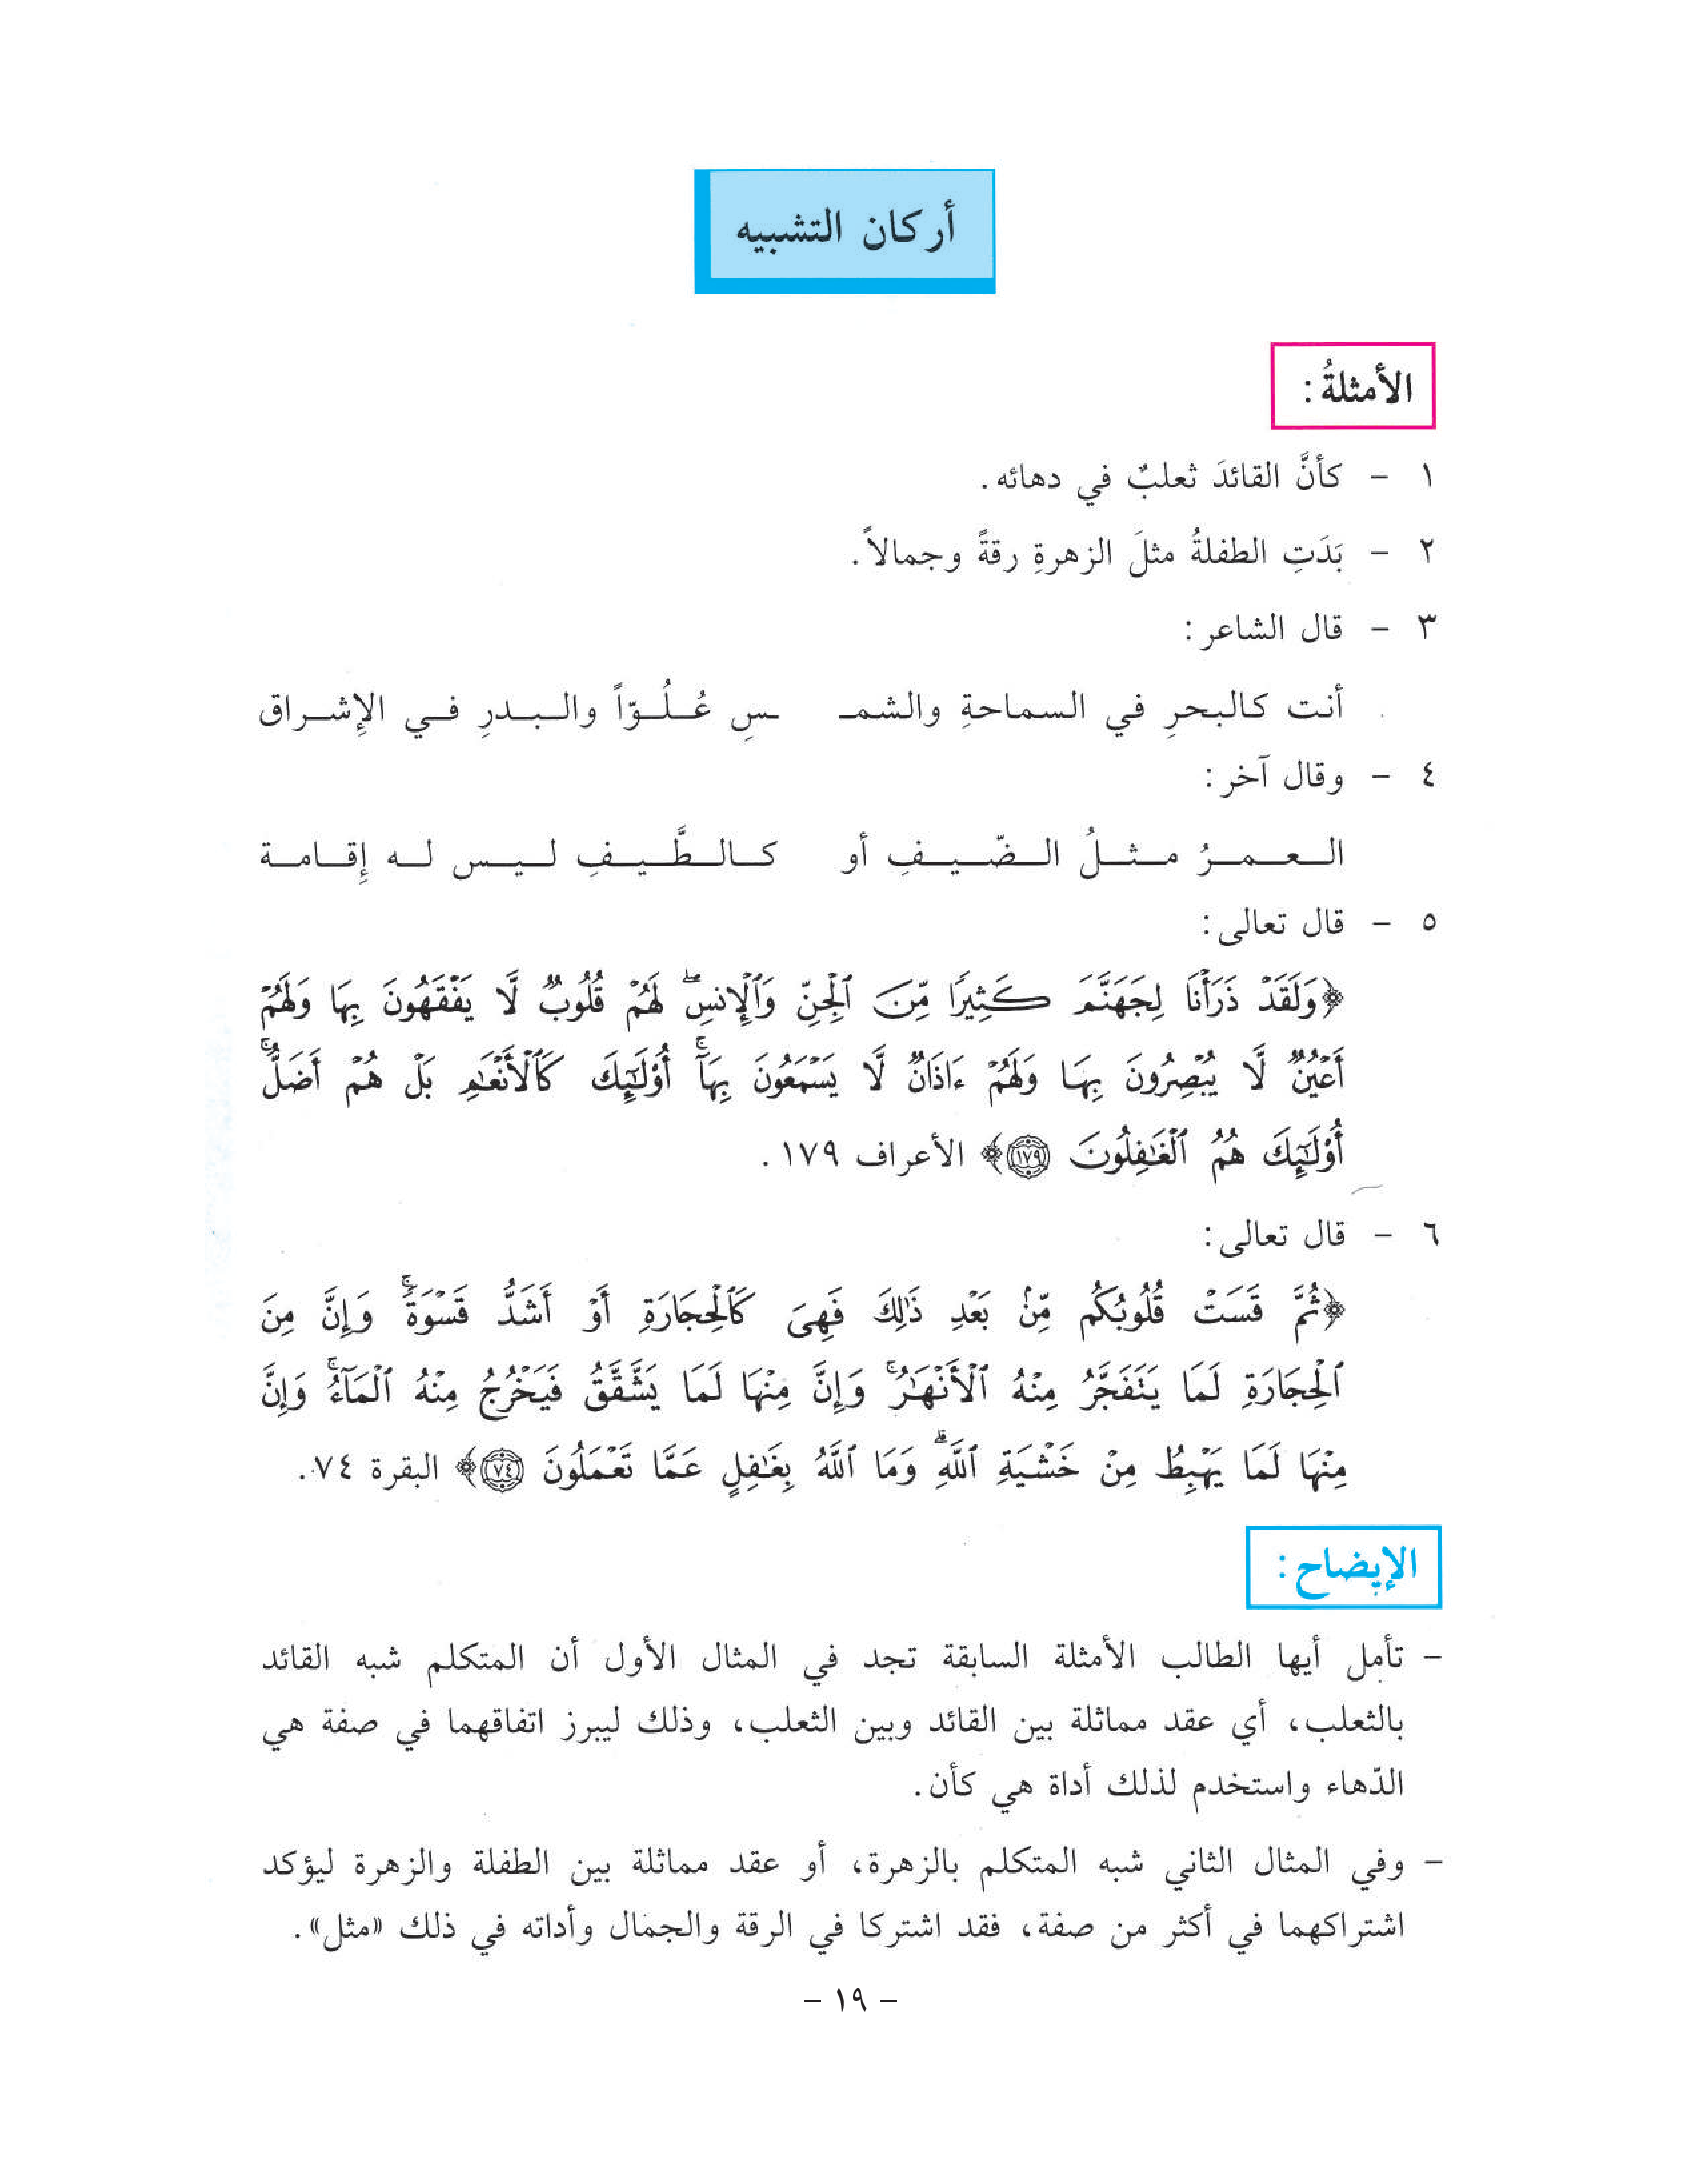 أركان التشبيه
الأمثلةُ:
١ - كأنَّ القائدَ ثعلبٌ في دهائه.
٢ - بَدَتِ الطفلةُ مثلَ الزهرةِ رقةً وجمالاً.
٣ - قال الشاعر:
أنت كالبحرِ في السماحةِ والشمـ ـسِ عُـلُـوّاً والـبـدرِ فـي الإشـراق
٤ - وقال آخر:
الـعـمـرُ مـثـلُ الـضّـيـفِ أو كـالـطَّـيـفِ لـيـس لـه إقـامـة
٥ - قال تعالى:
﴿وَلَقَدْ ذَرَأْنَا لِجَهَنَّمَ كَثِيرًا مِّنَ ٱلْجِنِّ وَٱلْإِنسِ ۖ لَهُمْ قُلُوبٌ لَّا يَفْقَهُونَ بِهَا وَلَهُمْ
أَعْيُنٌ لَّا يُبْصِرُونَ بِهَا وَلَهُمْ ءَاذَانٌ لَّا يَسْمَعُونَ بِهَآ ۚ أُو۟لَٰٓئِكَ كَٱلْأَنْعَٰمِ بَلْ هُمْ أَضَلُّ ۚ
أُو۟لَٰٓئِكَ هُمُ ٱلْغَٰفِلُونَ ١٧٩﴾ الأعراف ١٧٩.
٦ - قال تعالى:
﴿ثُمَّ قَسَتْ قُلُوبُكُم مِّنۢ بَعْدِ ذَٰلِكَ فَهِىَ كَٱلْحِجَارَةِ أَوْ أَشَدُّ قَسْوَةً ۚ وَإِنَّ مِنَ
ٱلْحِجَارَةِ لَمَا يَتَفَجَّرُ مِنْهُ ٱلْأَنْهَٰرُ ۚ وَإِنَّ مِنْهَا لَمَا يَشَّقَّقُ فَيَخْرُجُ مِنْهُ ٱلْمَآءُ ۚ وَإِنَّ
مِنْهَا لَمَا يَهْبِطُ مِنْ خَشْيَةِ ٱللَّهِ ۗ وَمَا ٱللَّهُ بِغَٰفِلٍ عَمَّا تَعْمَلُونَ ٧٤﴾ البقرة ٧٤.
الإيضاح:
- تأمل أيها الطالب الأمثلة السابقة تجد في المثال الأول أن المتكلم شبه القائد
بالثعلب، أي عقد مماثلة بين القائد وبين الثعلب، وذلك ليبرز اتفاقهما في صفة هي
الدّهاء واستخدم لذلك أداة هي كأن.
- وفي المثال الثاني شبه المتكلم بالزهرة، أو عقد مماثلة بين الطفلة والزهرة ليؤكد
اشتراكهما في أكثر من صفة، فقد اشتركا في الرقة والجمال وأداته في ذلك «مثل».
- ١٩ -